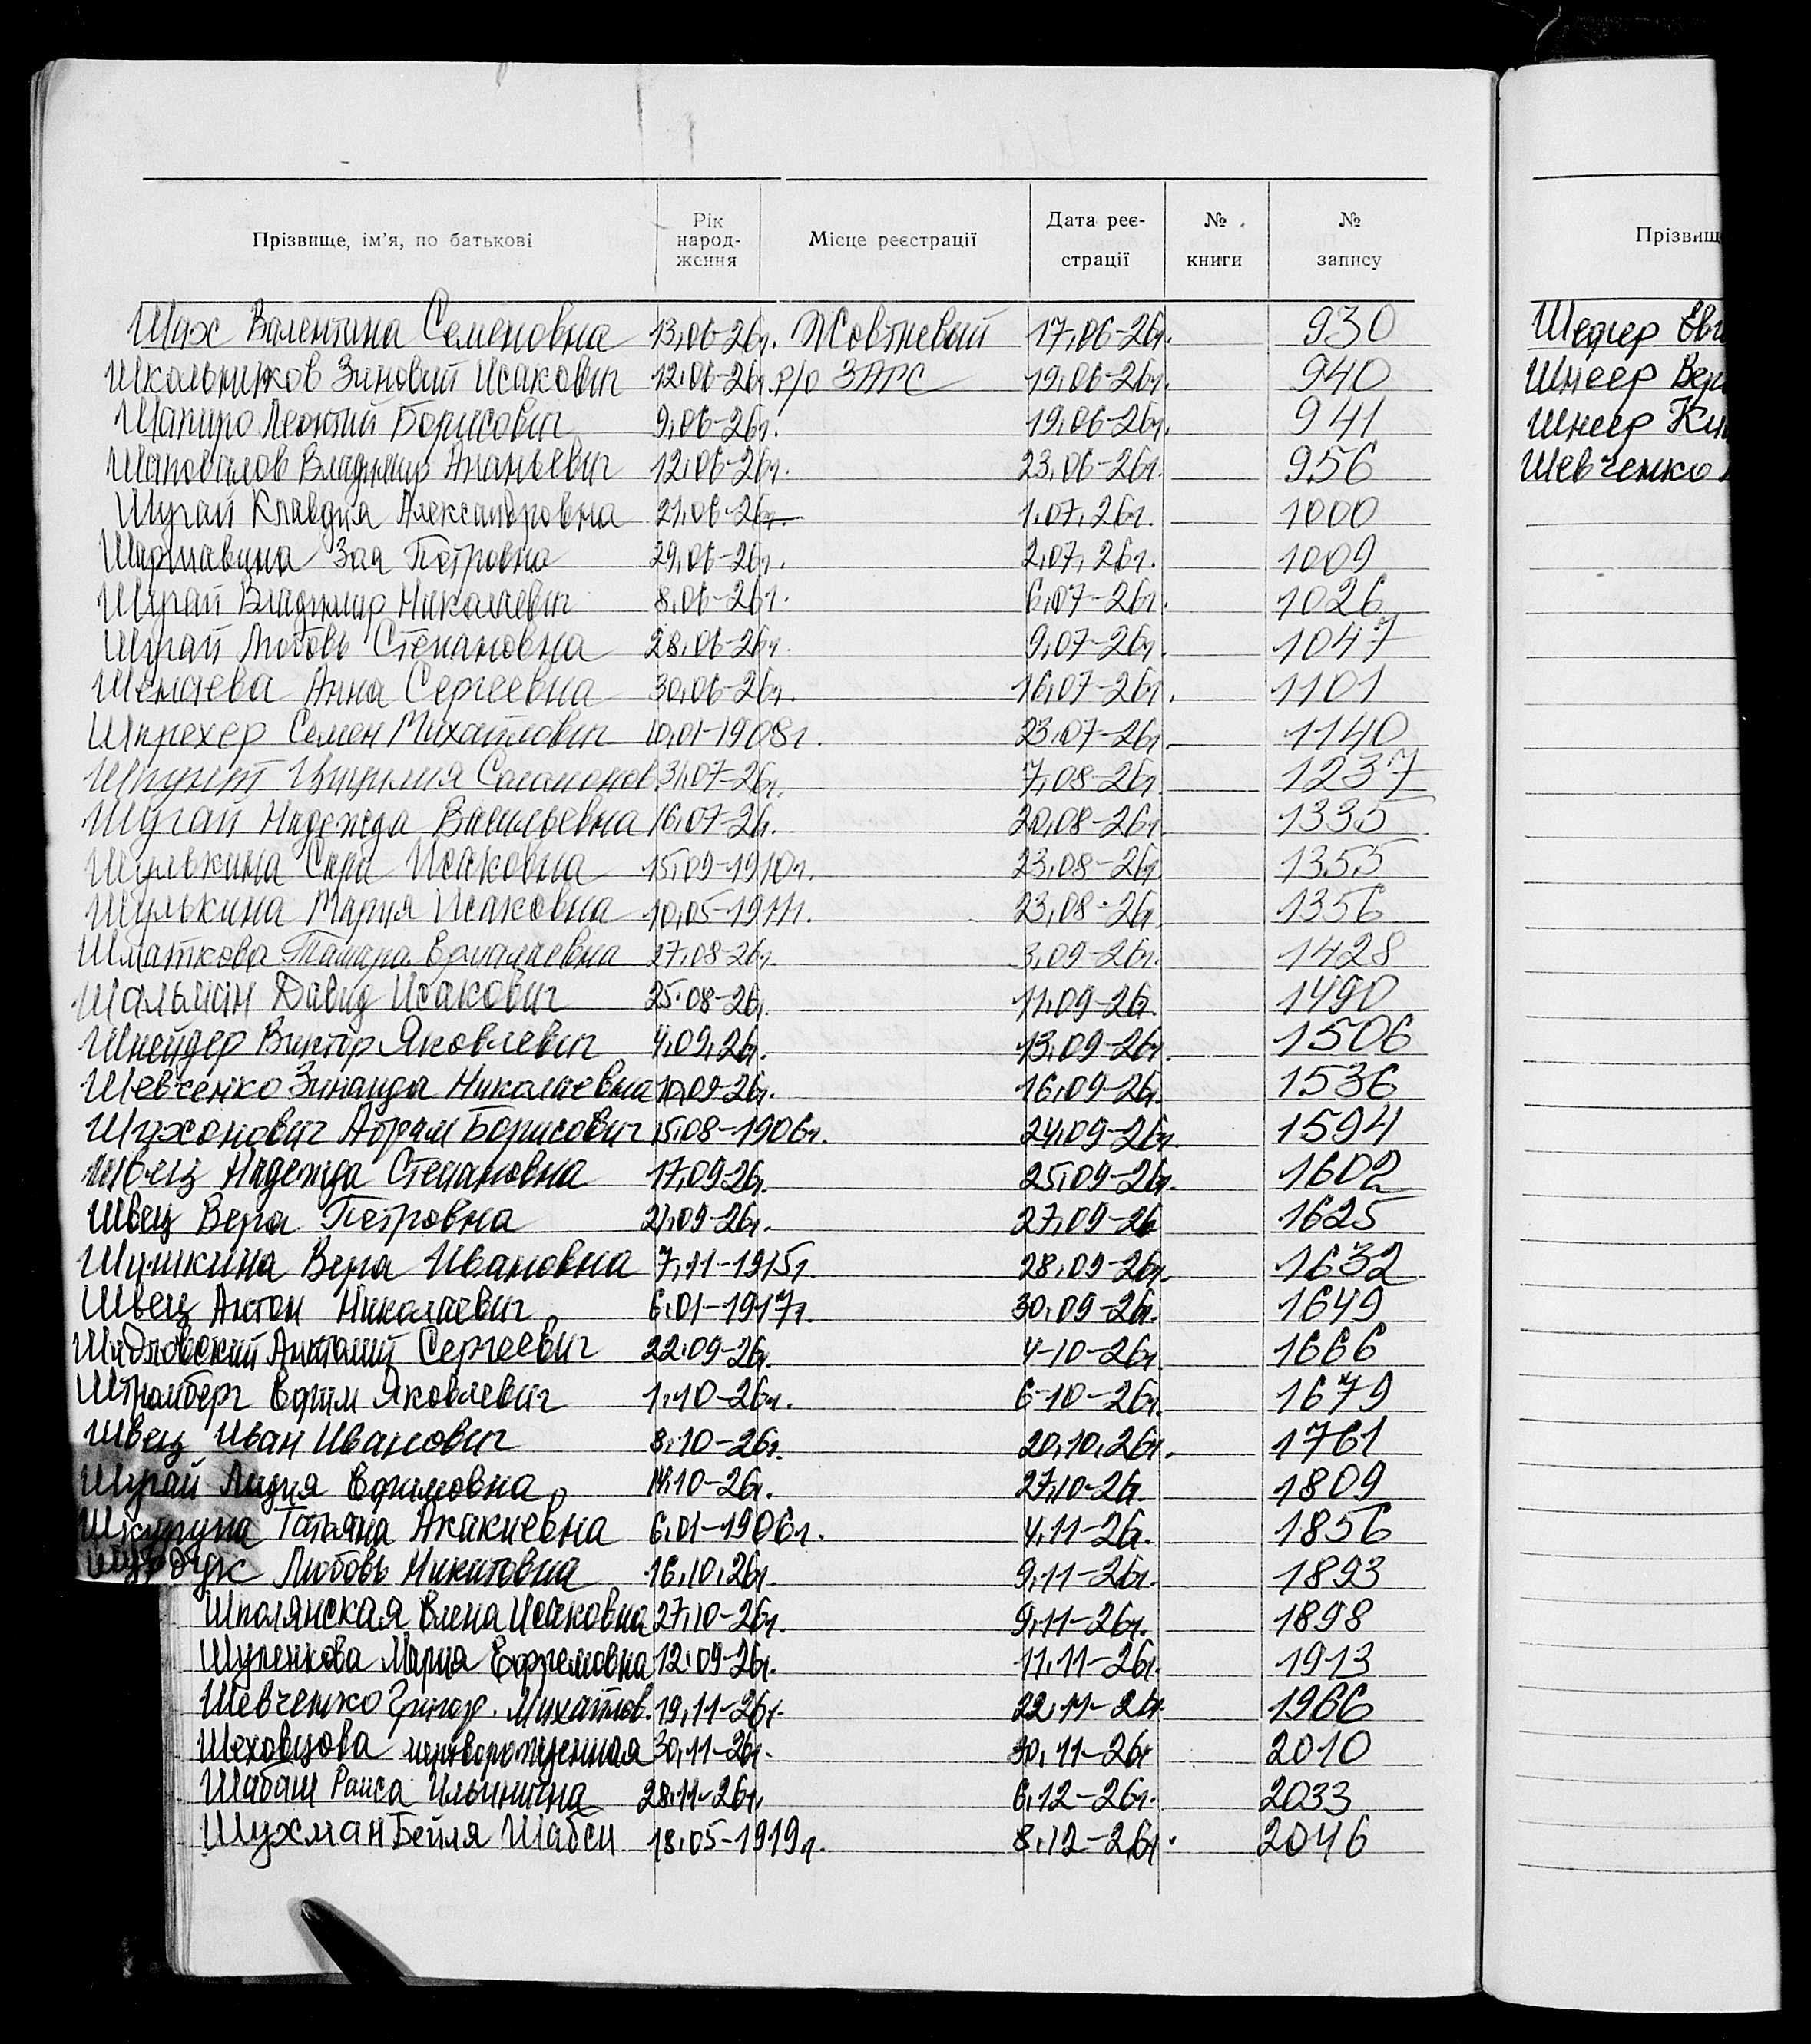 Прізвище, ім'я, по батькові Рік народ- ження Місце реєстрації Дата реє- страції № книги № запису
Шах Валентина Семеновна 13,06-26г. Жовтневый 17,06-26г. 930
Школьников Зиновий Исакович 12,06-26г. р/о ЗАГС 19,06-26г. 940
Шапиро Леонтий Борисович 9,06-26г. 19,06-26г. 941
Шаповалов Владимир Ананьевич 12,06-26г. 23,06-26г. 956
Шугай Клавдия Александровна 21,06-26г. 1,07,26г. 1000
Зоя Петровна 29,06-26г. 2,07,26г. 1009
Шугай Владимир Николаевич 8,06-26г. 6,07-26г. 1026
Шугай Любовь Степановна 28,06-26г. 9,07-26г. 1047
Анна Сергеевна 30,06-26г. 16,07-26г. 1101
Шпрехер Семен Михайлович 10,01-1908г. 23,07-26г. 1140
31,07-26г. 7,08-26г 1237
Шугай Надежда Васильевна 16,07-26г. 20,08-26г. 1335
Шулькина Сара Исаковна 15,09-1910г. 23,08-26г 1355
Шулькина Мария Исаковна 10,05-1911г. 23,08-26г. 1356
Шматкова Тамара 27,08-26г. 3,09-26г. 1428
Шальман Давид Исакович 25.08-26г. 11,09-26г. 1490
Шнейдер Виктор Яковлевич 4,09,26г. 13,09-26г. 1506
Шевченко Зинаида Николаевна 10,09-26г. 16,09-26г. 1536
Шухонович Абрам Борисович 15,08-1906г. 24,09-26г. 1594
Швец Надежда Степановна 17,09-26г. 25,09-26г. 1602
Швец Вера Петровна 21,09-26г. 27,09-26 1625
Шушкина Вера Ивановна 7,11-1915г. 28,09-26г. 1632
Швец Антон Николаевич 6,01-1917г. 30,09-26г. 1649
Шидловский Анатолий Сергеевич 22,09-26г. 4-10-26г. 1666
Штромберг Ефим Яковлевич 1,10-26г. 6-10-26г. 1679
Швец Иван Иванович 8,10-26г. 20,10,26г. 1761
Шугай Лидия Ефимовна 14,10-26г. 27,10-26г. 1809
Шкурупа Татьяна Акакиевна 6,01-1906г. 4,11-26г. 1856
Любовь Никитовна 16,10,26г. 9,11-26г. 1893
Шполянская Елена Исаковна 27,10-26г. 9,11-26г. 1898
Шупенкова Мария Ефремовна 12,09-26г. 11,11-26г. 1913
Шевченко Григор. Михайлов. 19,11-26г. 22,11-26г. 1966
Шеховцова мертворожденная 30,11-26г. 30,11-26г 2010
Шабаш Раиса Ильинична 28,11-26г. 6,12-26г. 2033
Шухман Бейля Шабси 18,05-1919г. 8,12-26г. 2046
Прізвищ
Шефер Евг
Шнеер Вер
Шнеер
Шевченко